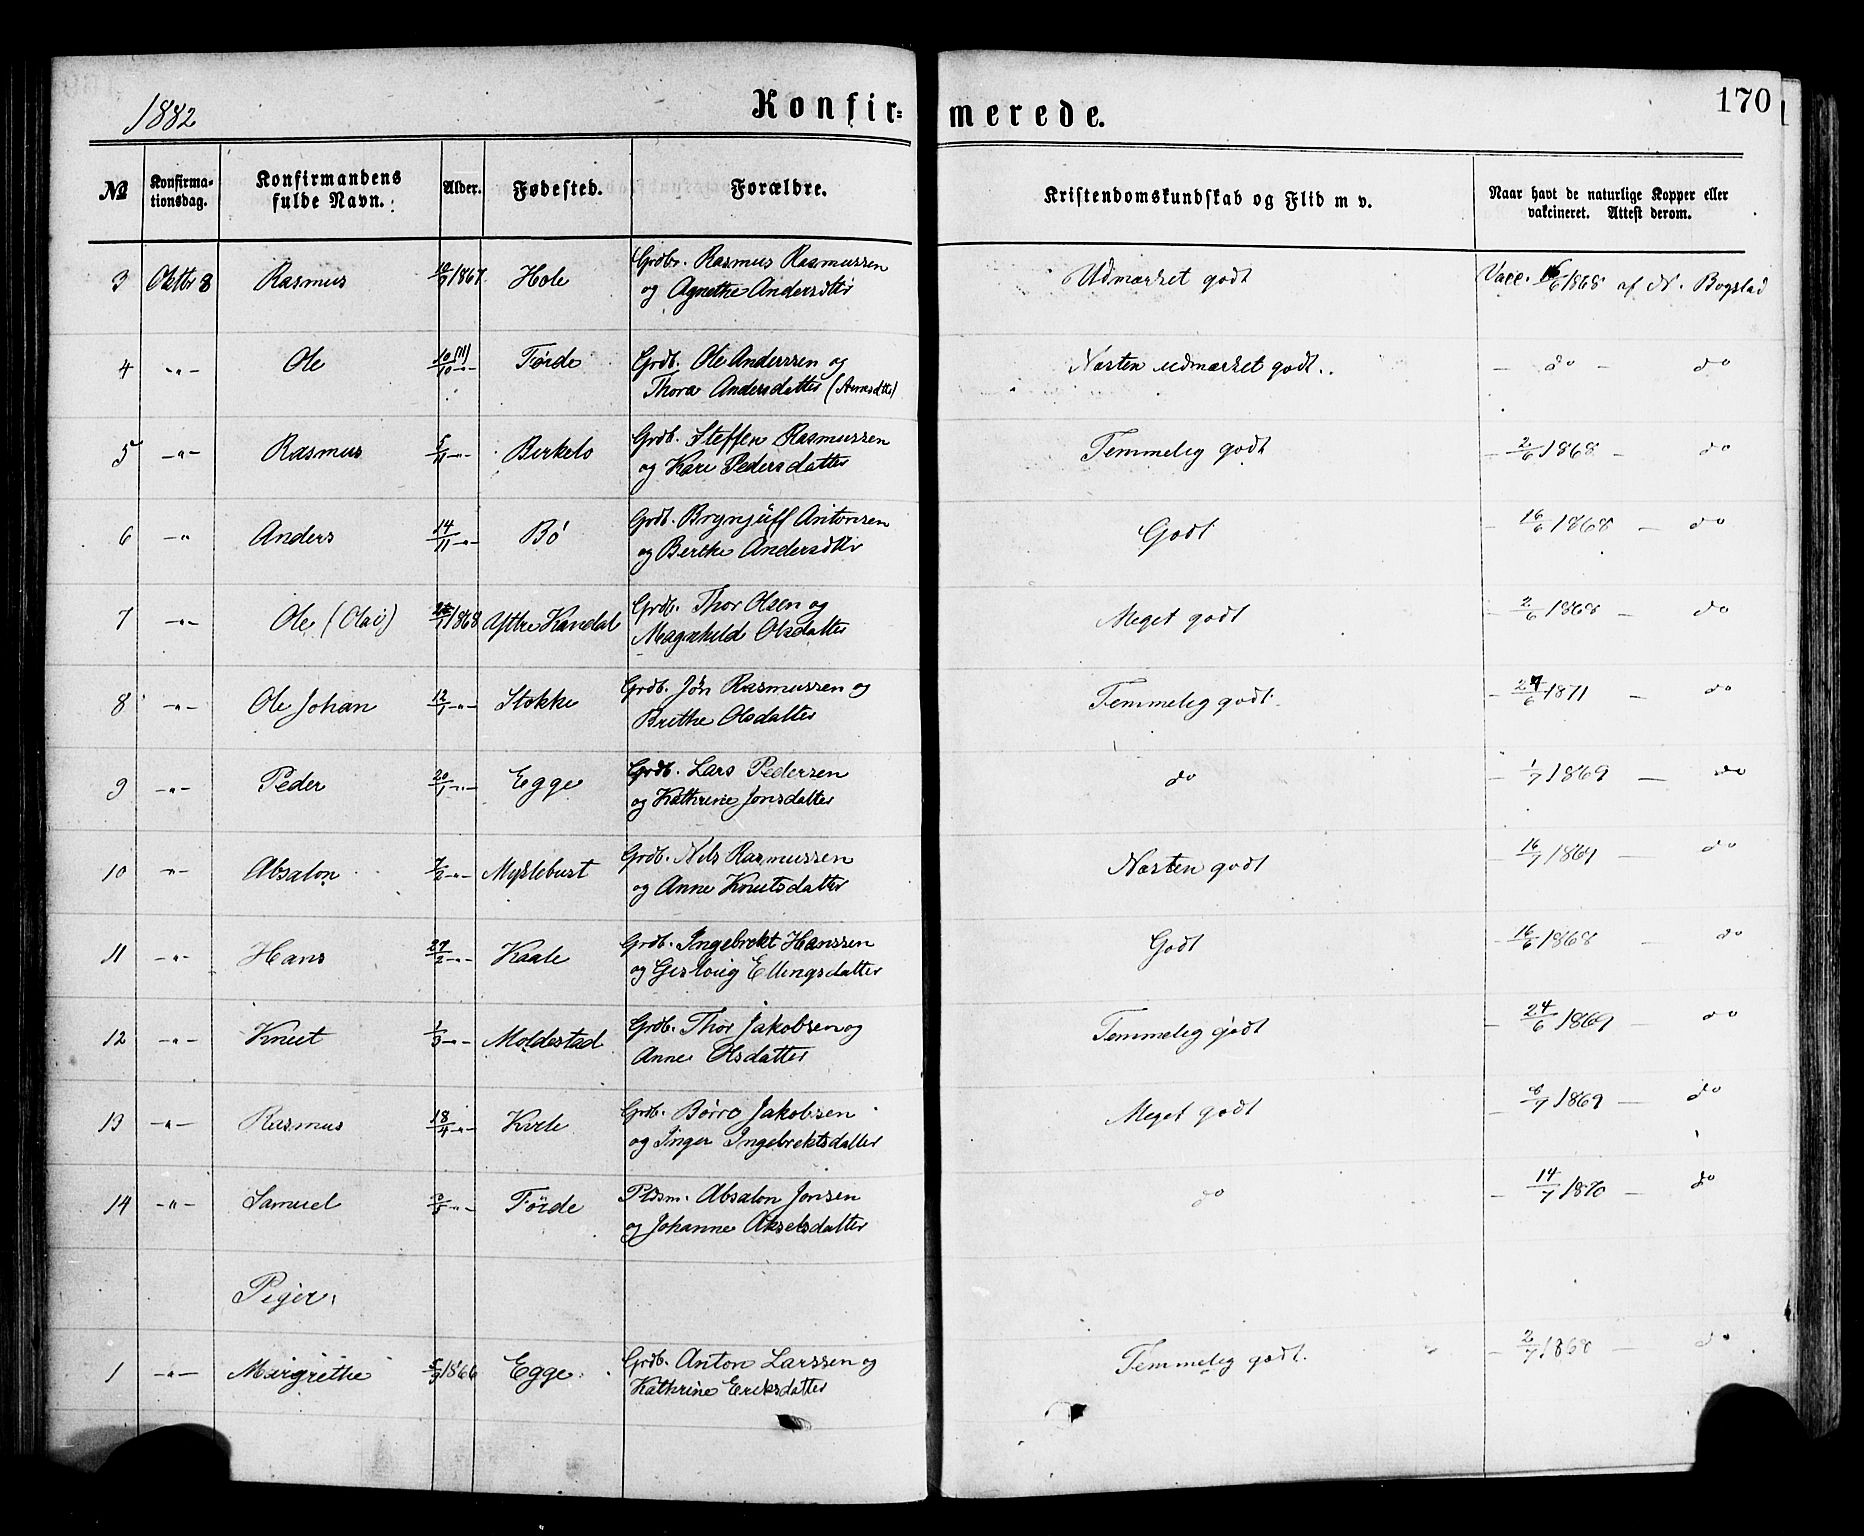 1882 Konfir= merede. 170
№ Konfirma-tionsdag. Konfirmandens fulde Navn. Alder. Fødested. Forældre. Kristendomskundskab og Flid m v. Naar havt de naturlige Kopper eller vakcineret. Attest derom.
3 Oktbr 8 Rasmus 1867 Hole Grdbr. Rasmus Rasmussen Udmærket godt Vacc. 16/6 1868 af N. Bogstad
og Agnethe Andersdtr
4 -"- Ole 10/10 -"- Førde Grdb. Ole Anderssen og Næsten udmærket godt. - do - do
Thora Andersdatter (Arnesdtr)
5 -"- Rasmus 5/11 -"- Birkelo Grdb. Steffen Rasmussen Temmelig godt - 2/6 1868 - do
og Kari Pedersdatter
6 -"- Anders 14/11 -"- Bø Grdb. Brynjulf Antonsen Godt - 16/6 1868 - do
og Berthe Andersdtr
7 -"- Ole (Olai) 1868 Aftre Kandal Grdb. Thor Olsen og Meget godt - 2/6 1868 - do
Magnhild Olsdatter
8 -"- Ole Johan 12/1 -"- Stokke Grdb. Jón Rasmussen og Temmelig godt - 27/6 1871 - do
Brithe Olsdatter
9 -"- Peder 20/1 -"- Egge Grdb. Lars Pedersen do - 1/7 1869 - do
og Kathrine Jonsdatter
10 -"- Absalon 7/2 -"- Myklebust Grdb. Nils Rasmussen Næsten godt - 16/7 1869 - do
og Anne Knutsdatter
11 -"- Hans 27/2 -"- Kaale Grdb. Ingebrekt Hanssen Godt - 16/6 1868 - do
og Gisloug Ellingsdatter
12 -"- Knut 1/3 -"- Moldestad Grdb. Thor Jakobsen og Temmelig godt - 24/6 1869 - do
Anne Olsdatter
13 -"- Rasmus 18/4 -"- Kvile Grdb. Børre Jakobsen Meget godt - 8/7 1869 - do
og Inger Ingebrektsdatter
14 -"- Samuel -"- Førde Pldsm. Absalon Jonsen do - 14/7 1870 - do
og Johanne Akselsdatter
Piger.
1 -"- Margrethe 5/9 1866 Egge. Grdb. Anton Larssen og Temmelig godt. - 2/7 1868 - do
Kathrine Eriksdatter